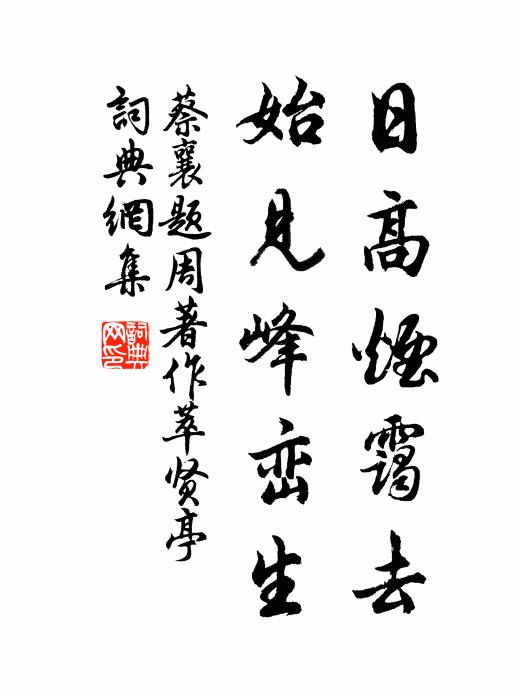 日高煙靄去
始見峰峦生
蔡襄題周著作萃贤亭
詞典網集
詞典网印